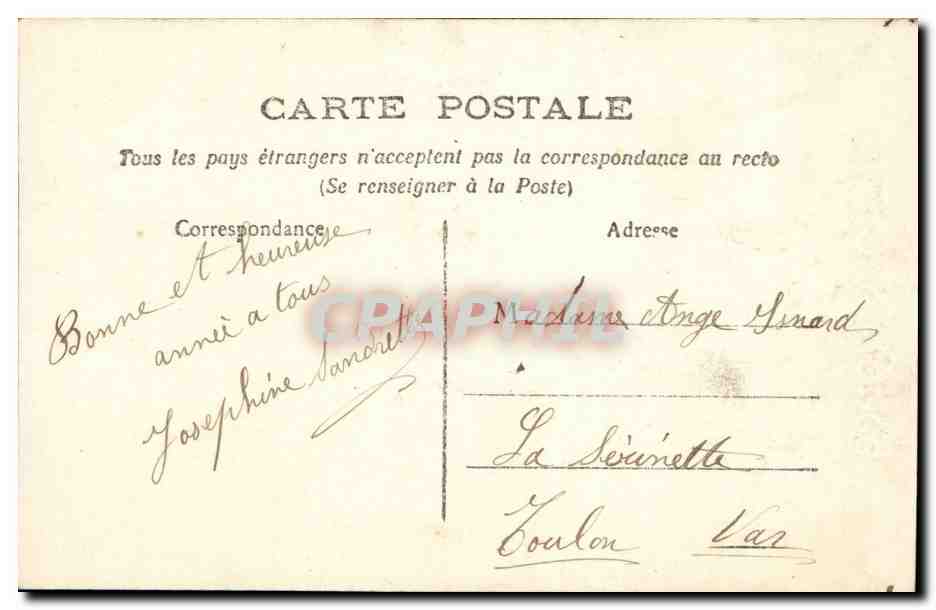 CARTE POSTALE
Tous les pays étrangers n'acceptent pas la correspondance au recto
(Se renseigner à la Poste)
Correspondance
Bonne et heureuse
année a tous
Joséphine Vandrette
Adresse
Madame Ange Isnard
La Sérinette
Toulon Var
CPAPHIL